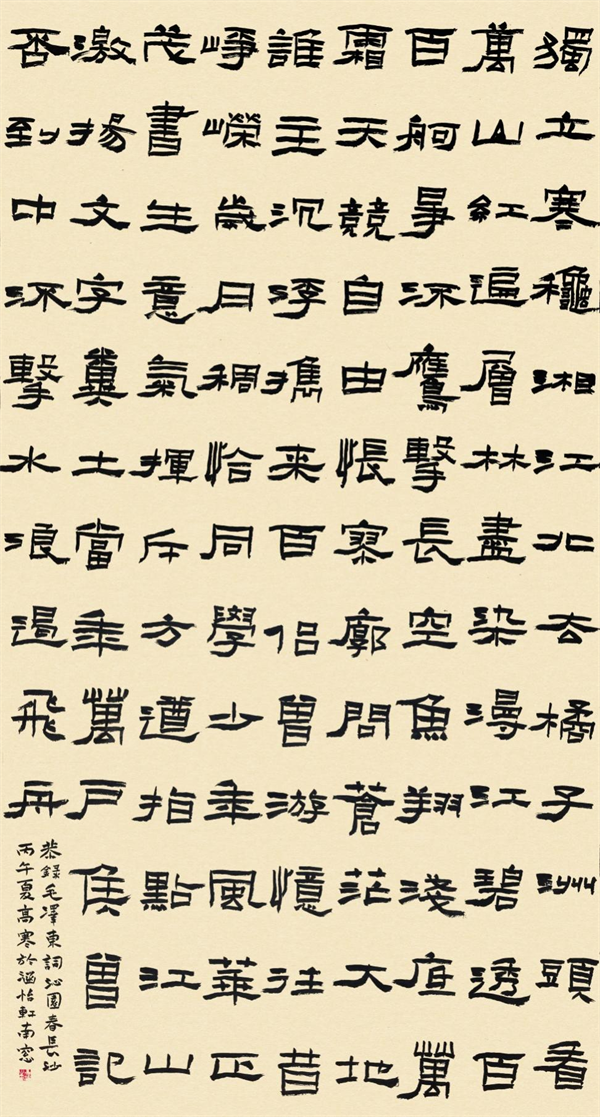 獨立寒穐湘江北去橘子州頭看
萬山紅遍層林盡染漫江碧透百
百舸爭流鷹擊長空魚翔淺底萬
霜天競自由悵寥廓問蒼茫大地
誰主沉浮攜來百侣曾游憶往昔
崢嶸歲月稠恰同學少年風華正
茂書生意氣揮斥方遒指點江山
激揚文字糞土當年萬戶侯曾記
否到中流擊水浪遏飛舟
恭錄毛澤東詞沁園春長沙
丙午夏高寒於軒南窓